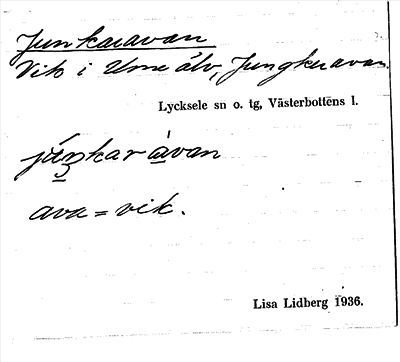 Junkaravan
Vik i Ume älv, Jungkeravan.
Lycksele sn o. tg, Västerbottens l.
júnkar àvan
ava = vik.
Lisa Lidberg 1936.